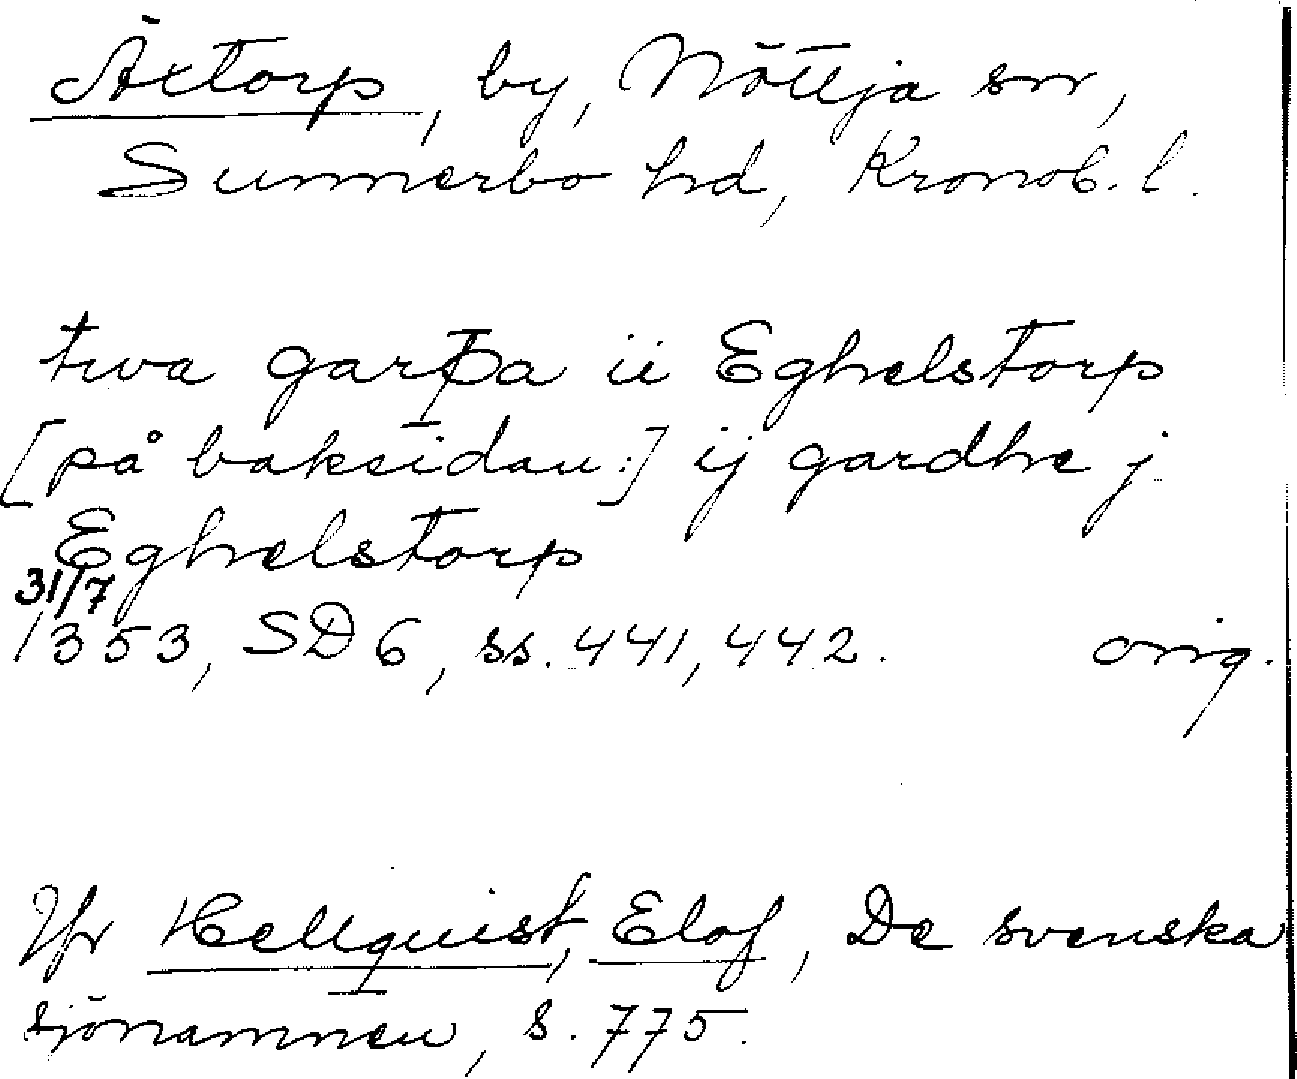 Äxtorp, by, Nöttja sn,
Sunnerbo hd, Kronob. l.
twa garþa ii Eghelstorp
[på baksidan:] ij gardhe j
Eghelstorp
31/7
1353, SD 6, ss. 441, 442. orig.
Jfr Hellquist, Elof, De svenska
sjönamnen, s. 775.